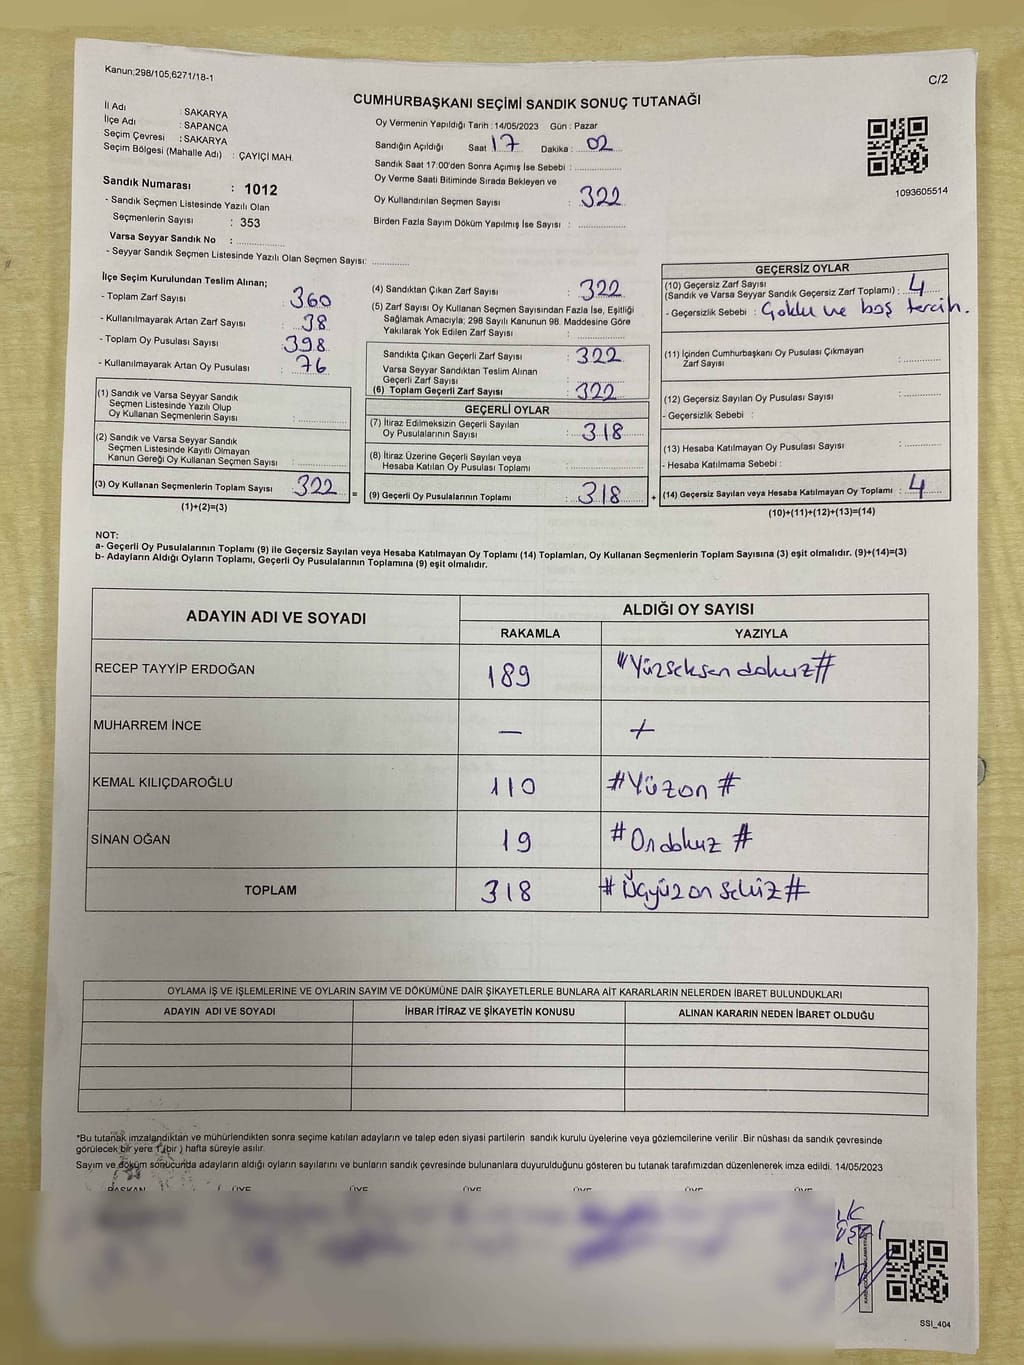 Kanun;298/105,6271/18-1
C/2
CUMHURBAŞKANI SEÇİMİ SANDIK SONUÇ TUTANAĞI
İl Adı : SAKARYA
İlçe Adı : SAPANCA
Seçim Çevresi : SAKARYA
Seçim Bölgesi (Mahalle Adı) : ÇAYİÇİ MAH.
Sandık Numarası : 1012
- Sandık Seçmen Listesinde Yazılı Olan
Seçmenlerin Sayısı : 353
Varsa Seyyar Sandık No : ..............
- Seyyar Sandık Seçmen Listesinde Yazılı Olan Seçmen Sayısı: ..............
Oy Vermenin Yapıldığı Tarih :14/05/2023 Gün : Pazar
Sandığın Açıldığı Saat 17 Dakika : 02
Sandık Saat 17:00'den Sonra Açımış İse Sebebi : ..............
Oy Verme Saati Bitiminde Sırada Bekleyen ve
Oy Kullandırılan Seçmen Sayısı : 322
Birden Fazla Sayım Döküm Yapılmış İse Sayısı : ..............
1093605514
İlçe Seçim Kurulundan Teslim Alınan;
- Toplam Zarf Sayısı : 360
- Kullanılmayarak Artan Zarf Sayısı : 38
- Toplam Oy Pusulası Sayısı : 398
- Kullanılmayarak Artan Oy Pusulası : 76
(1) Sandık ve Varsa Seyyar Sandık
Seçmen Listesinde Yazılı Olup
Oy Kullanan Seçmenlerin Sayısı : ..............
(2) Sandık ve Varsa Seyyar Sandık
Seçmen Listesinde Kayıtlı Olmayan
Kanun Gereği Oy Kullanan Seçmen Sayısı : ..............
(3) Oy Kullanan Seçmenlerin Toplam Sayısı : 322 =
(1)+(2)=(3)
(4) Sandıktan Çıkan Zarf Sayısı : 322
(5) Zarf Sayısı Oy Kullanan Seçmen Sayısından Fazla İse, Eşitliği
Sağlamak Amacıyla; 298 Sayılı Kanunun 98. Maddesine Göre
Yakılarak Yok Edilen Zarf Sayısı : ..............
Sandıkta Çıkan Geçerli Zarf Sayısı : 322
Varsa Seyyar Sandıktan Teslim Alınan
Geçerli Zarf Sayısı : ..............
(6) Toplam Geçerli Zarf Sayısı : 322
GEÇERLİ OYLAR
(7) İtiraz Edilmeksizin Geçerli Sayılan
Oy Pusulalarının Sayısı : 318
(8) İtiraz Üzerine Geçerli Sayılan veya
Hesaba Katılan Oy Pusulası Toplamı : ..............
(9) Geçerli Oy Pusulalarının Toplamı : 318 +
GEÇERSİZ OYLAR
(10) Geçersiz Zarf Sayısı
(Sandık ve Varsa Seyyar Sandık Geçersiz Zarf Toplamı) : 4
- Geçersizlik Sebebi : Çoklu ve boş tercih.
(11) İçinden Cumhurbaşkanı Oy Pusulası Çıkmayan
Zarf Sayısı : ..............
(12) Geçersiz Sayılan Oy Pusulası Sayısı : ..............
- Geçersizlik Sebebi :
(13) Hesaba Katılmayan Oy Pusulası Sayısı : ..............
- Hesaba Katılmama Sebebi :
(14) Geçersiz Sayılan veya Hesaba Katılmayan Oy Toplamı : 4
(10)+(11)+(12)+(13)=(14)
NOT:
a- Geçerli Oy Pusulalarının Toplamı (9) ile Geçersiz Sayılan veya Hesaba Katılmayan Oy Toplamı (14) Toplamları, Oy Kullanan Seçmenlerin Toplam Sayısına (3) eşit olmalıdır. (9)+(14)=(3)
b- Adayların Aldığı Oyların Toplamı, Geçerli Oy Pusulalarının Toplamına (9) eşit olmalıdır.
ADAYIN ADI VE SOYADI ALDIĞI OY SAYISI
RAKAMLA YAZIYLA
RECEP TAYYİP ERDOĞAN 189 #Yüzseksendokuz#
MUHARREM İNCE — +
KEMAL KILIÇDAROĞLU 110 #Yüzon#
SİNAN OĞAN 19 #Ondokuz#
TOPLAM 318 #Üçyüzonsekiz#
OYLAMA İŞ VE İŞLEMLERİNE VE OYLARIN SAYIM VE DÖKÜMÜNE DAİR ŞİKAYETLERLE BUNLARA AİT KARARLARIN NELERDEN İBARET BULUNDUKLARI
ADAYIN ADI VE SOYADI İHBAR İTİRAZ VE ŞİKAYETİN KONUSU ALINAN KARARIN NEDEN İBARET OLDUĞU
*Bu tutanak imzalandıktan ve mühürlendikten sonra seçime katılan adayların ve talep eden siyasi partilerin sandık kurulu üyelerine veya gözlemcilerine verilir .Bir nüshası da sandık çevresinde
görülecek bir yere 1 (bir ) hafta süreyle asılır.
Sayım ve döküm sonucunda adayların aldığı oyların sayılarını ve bunların sandık çevresinde bulunanlara duyurulduğunu gösteren bu tutanak tarafımızdan düzenlenerek imza edildi. 14/05/2023
BAŞKAN ÜYE ÜYE ÜYE ÜYE ÜYE ÜYE
SSI_404